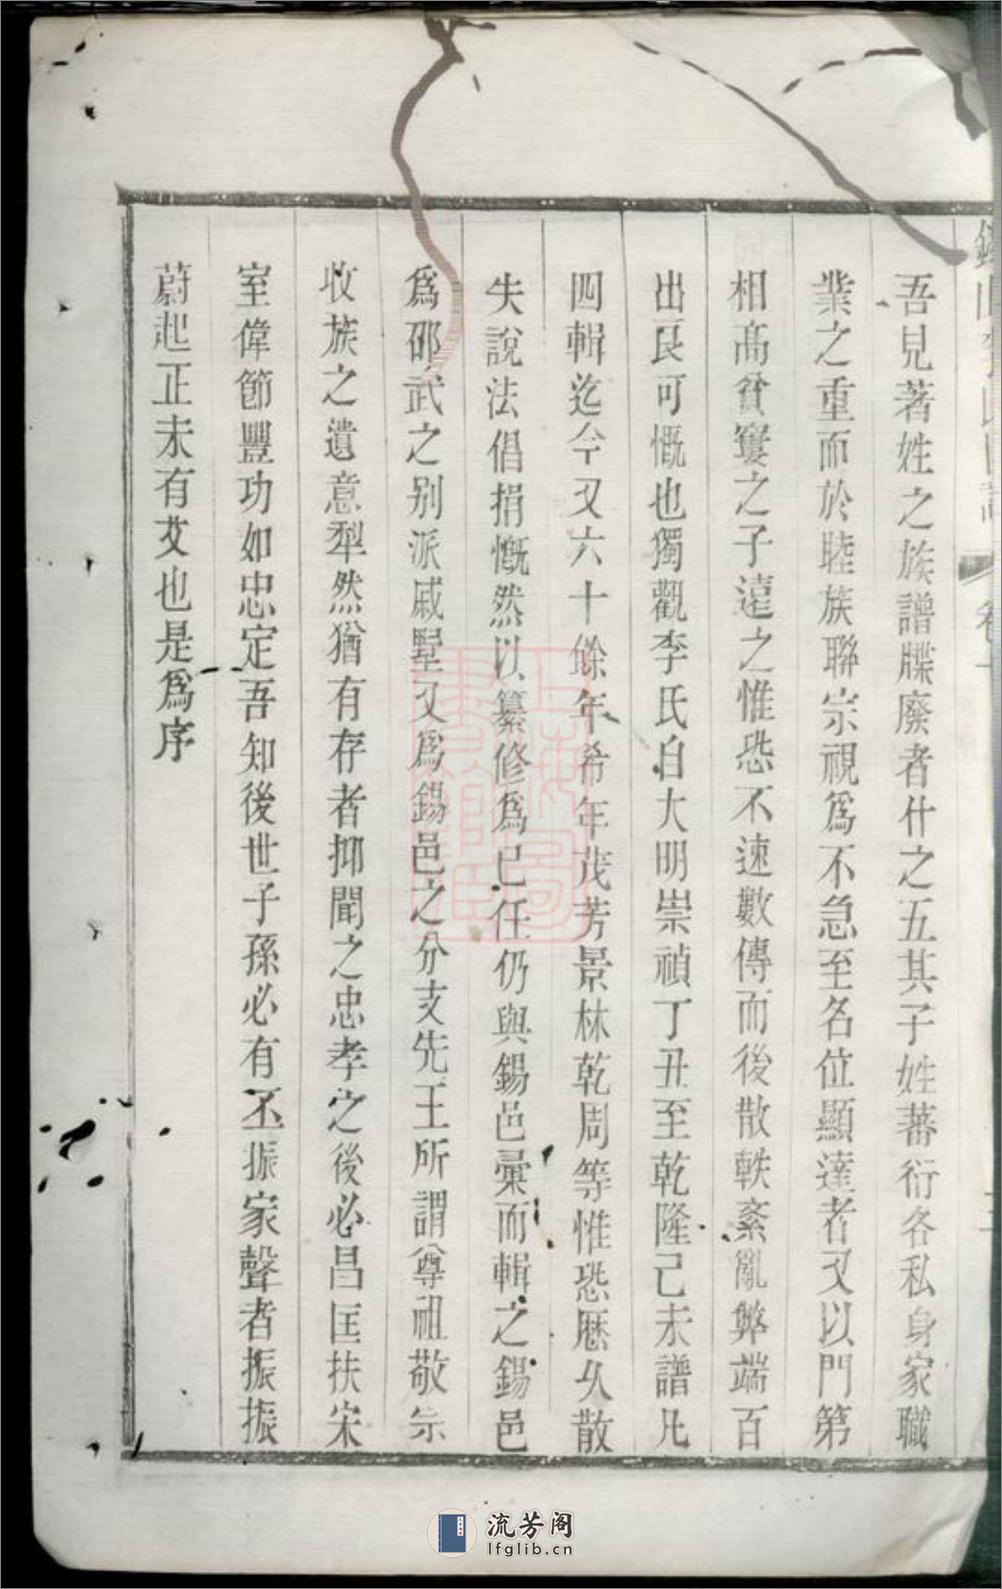 吾見著姓之族譜牒廢者什之五其子姓蕃衍各私身家職
業之重而於睦族聯宗視爲不急至名位顯達者又以門第
相高貧窶之子遠之惟恐不速數傳而後散軼紊亂弊端百
出良可慨也獨觀李氏自大明崇禎丁丑至乾隆己未譜凡
四輯迄今又六十餘年希年茂芳景林乾周等惟恐歷久散
失說法倡捐慨然以纂修爲己任仍與錫邑彙而輯之錫邑
爲邵武之别派戚墅又爲錫邑之分支先王所謂尊祖敬宗
收族之遺意犁然猶有存者抑聞之忠孝之後必昌匡扶宋
室偉節豐功如忠定吾知後世子孫必有丕振家聲者振振
蔚起正未有艾也是爲序
流芳阁
lfglib.cn